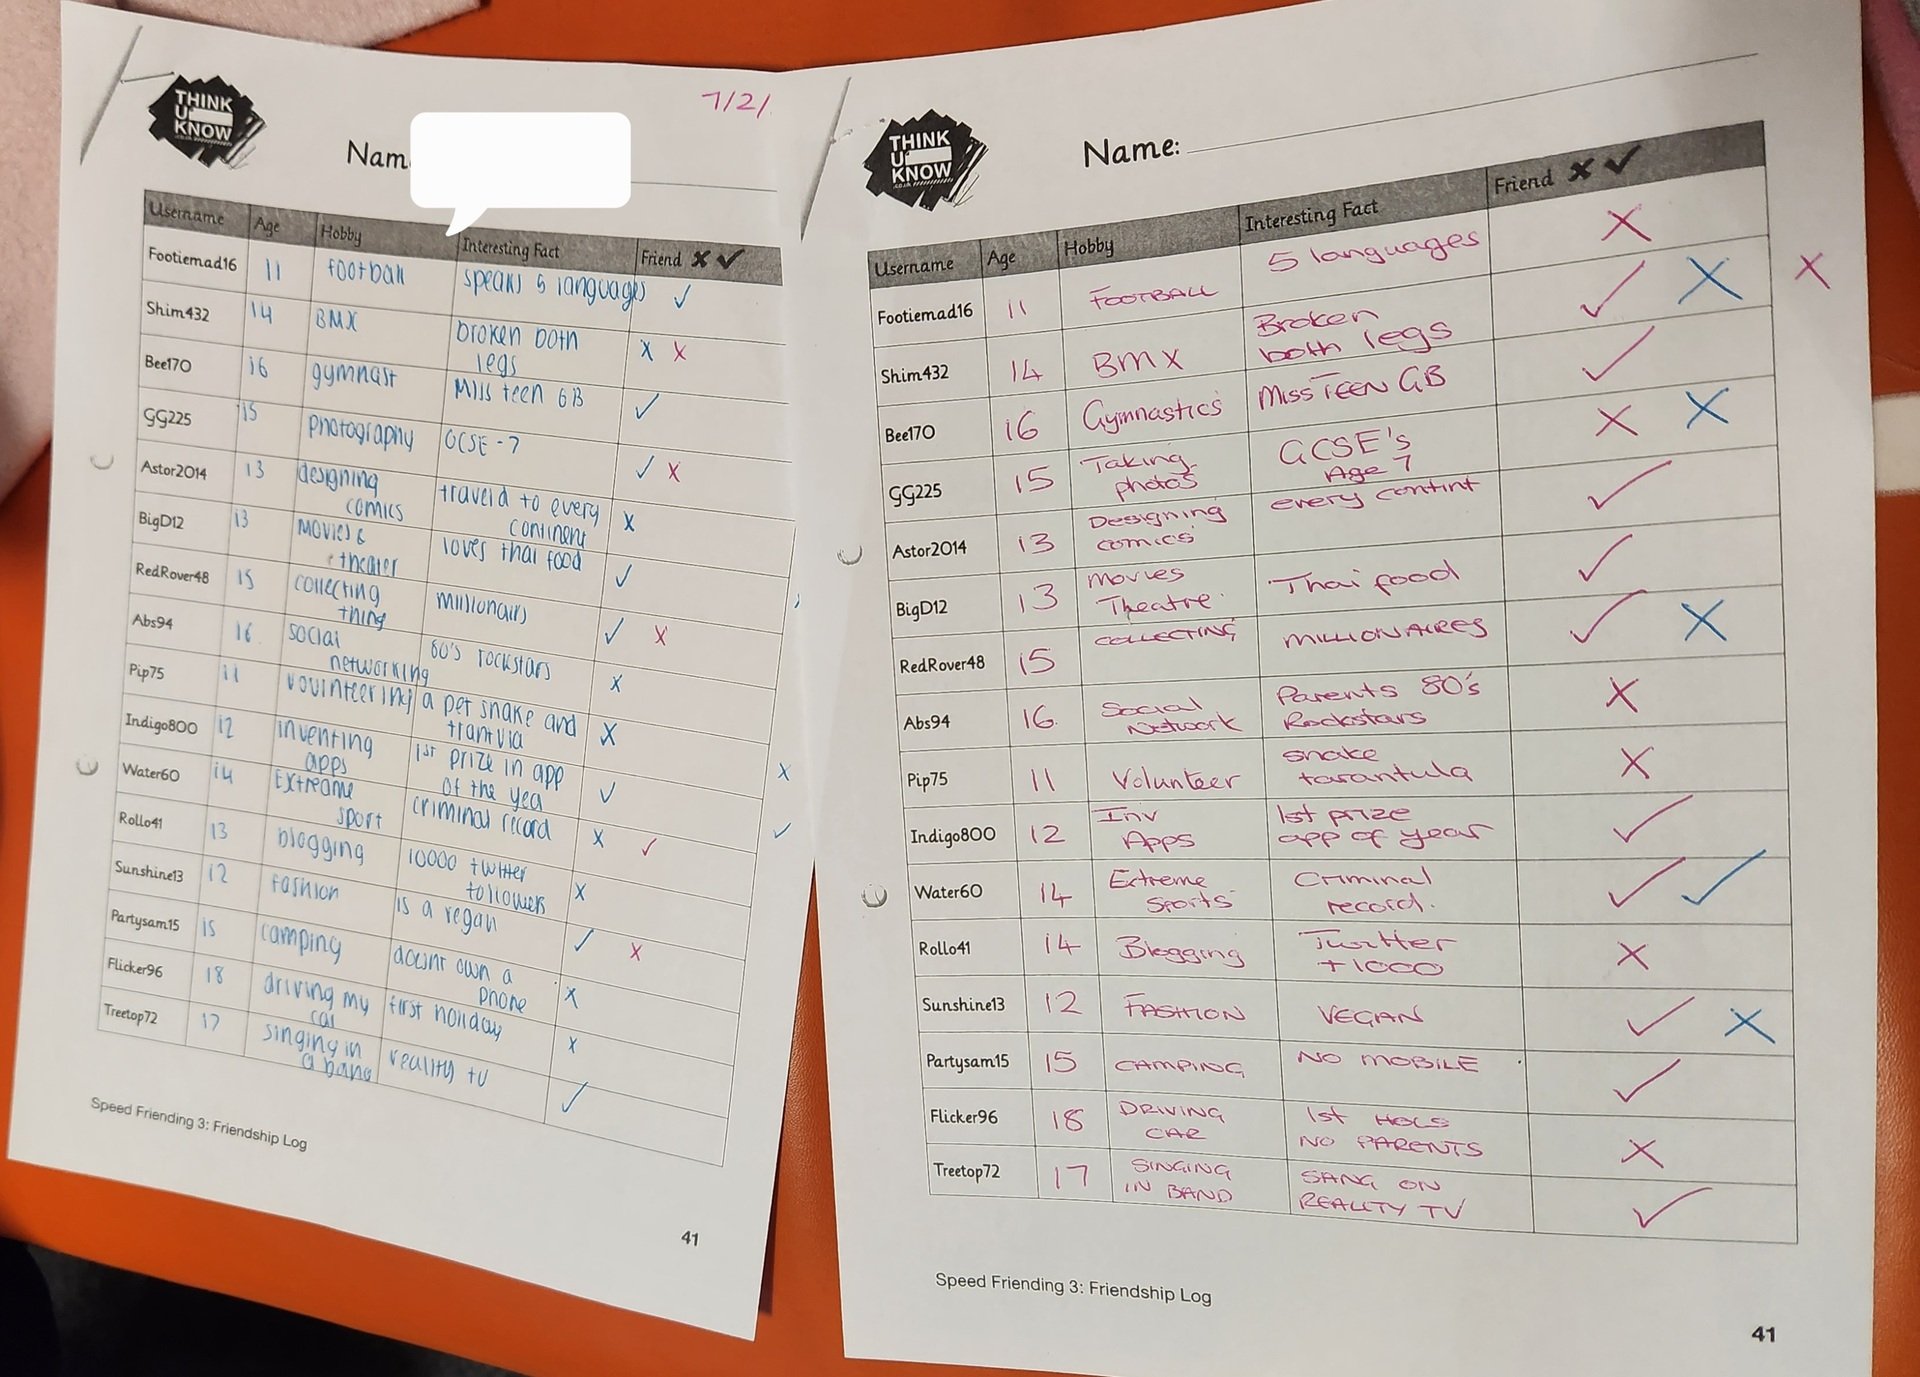 THINK
U
KNOW
.co.uk
7/2/
Nam
Username Age Hobby Interesting Fact Friend ✗ ✓
Footiemad16 11 football speaks 5 languages ✓
Shim432 14 BMX broken both
legs ✗ ✗
Bee170 16 gymnast Miss teen GB ✓
GG225 15 photography GCSE - 7 ✓ ✗
Astor2014 13 designing
comics traveld to every
continent ✗
BigD12 13 movies &
theater loves thai food ✓
RedRover48 15 collecting
thing millionairs ✓ ✗
Abs94 16 social
networking 80's rockstars ✗
Pip75 11 vounteering a pet snake and
trantvla ✗
Indigo800 12 inventing
apps 1st prize in app
of the yea ✓
Water60 14 Extreame
sport criminal record ✗ ✓
Rollo41 13 blogging 10000 twitter
followers ✗
Sunshine13 12 fashion is a vegan ✓ ✗
Partysam15 15 camping dosnt own a
phone ✗
Flicker96 18 driving my
car first holiday ✗
Treetop72 17 singing in
a band reality tv ✓
Speed Friending 3: Friendship Log
41
THINK
U
KNOW
.co.uk
Name:
Username Age Hobby Interesting Fact Friend ✗ ✓
Footiemad16 11 FOOTBALL 5 languages ✗
Shim432 14 BMX Broken
both legs ✓ ✗ ✗
Bee170 16 Gymnastics Miss TEEN GB ✓
GG225 15 Taking
photos GCSE's
Age 7 ✗ ✗
Astor2014 13 Designing
comics every contint ✓
BigD12 13 Movies
Theatre Thai food ✓
RedRover48 15 COLLECTING MILLIONAIRES ✓ ✗
Abs94 16 Social
Network Parents 80's
Rockstars ✗
Pip75 11 Volunteer snake
tarantula ✗
Indigo800 12 Inv
Apps 1st prize
app of year ✓
Water60 14 Extreme
Sports Criminal
record. ✓ ✓
Rollo41 14 Blogging Twitter
+1000 ✗
Sunshine13 12 FASHION VEGAN ✓ ✗
Partysam15 15 CAMPING NO MOBILE ✓
Flicker96 18 DRIVING
CAR 1st HOLS
NO PARENTS ✗
Treetop72 17 SINGING
IN BAND SANG ON
REALITY TV ✓
Speed Friending 3: Friendship Log
41